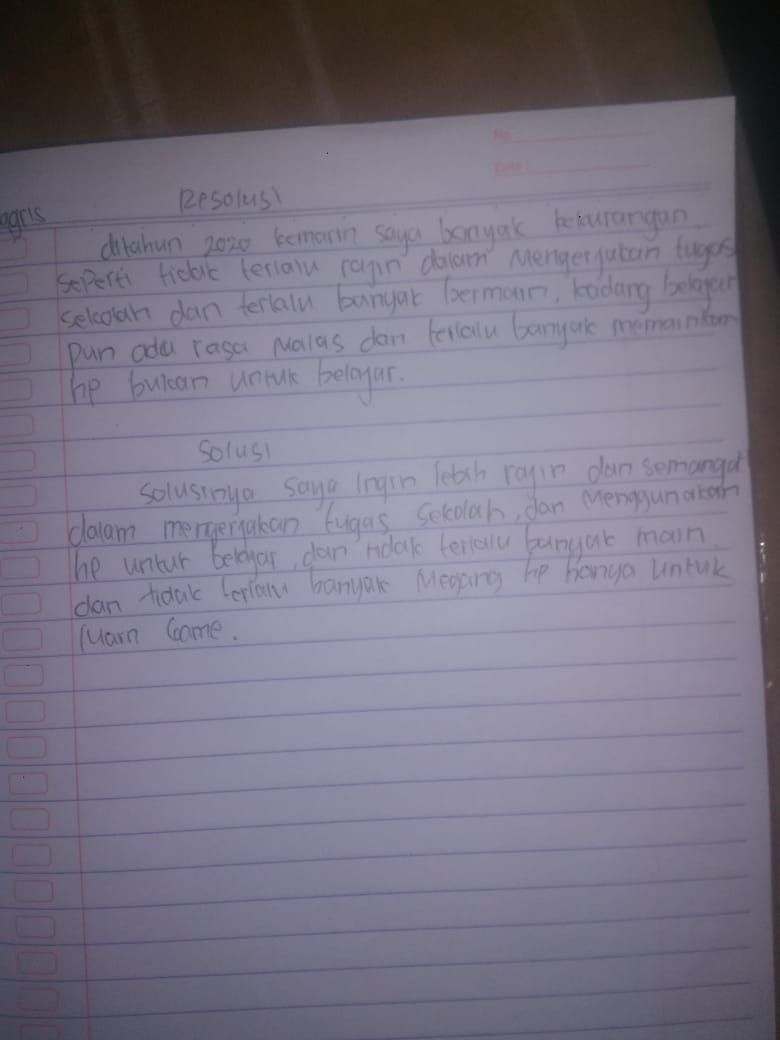 No:
Date:
Resolusi
ggris
ditahun 2020 kemarin saya banyak kekurangan
seperti tidak terlalu rajin dalam mengerjakan tugas
sekolah dan terlalu banyak bermain, kadang belajar
pun ada rasa malas dan terlalu banyak memainkan
hp bukan untuk belajar.
Solusi
Solusinya saya ingin lebih rajin dan semangat
dalam mengerjakan tugas sekolah, dan menggunakan
hp untuk belajar, dan tidak terlalu banyak main
dan tidak terlalu banyak megang hp hanya untuk
main Game.